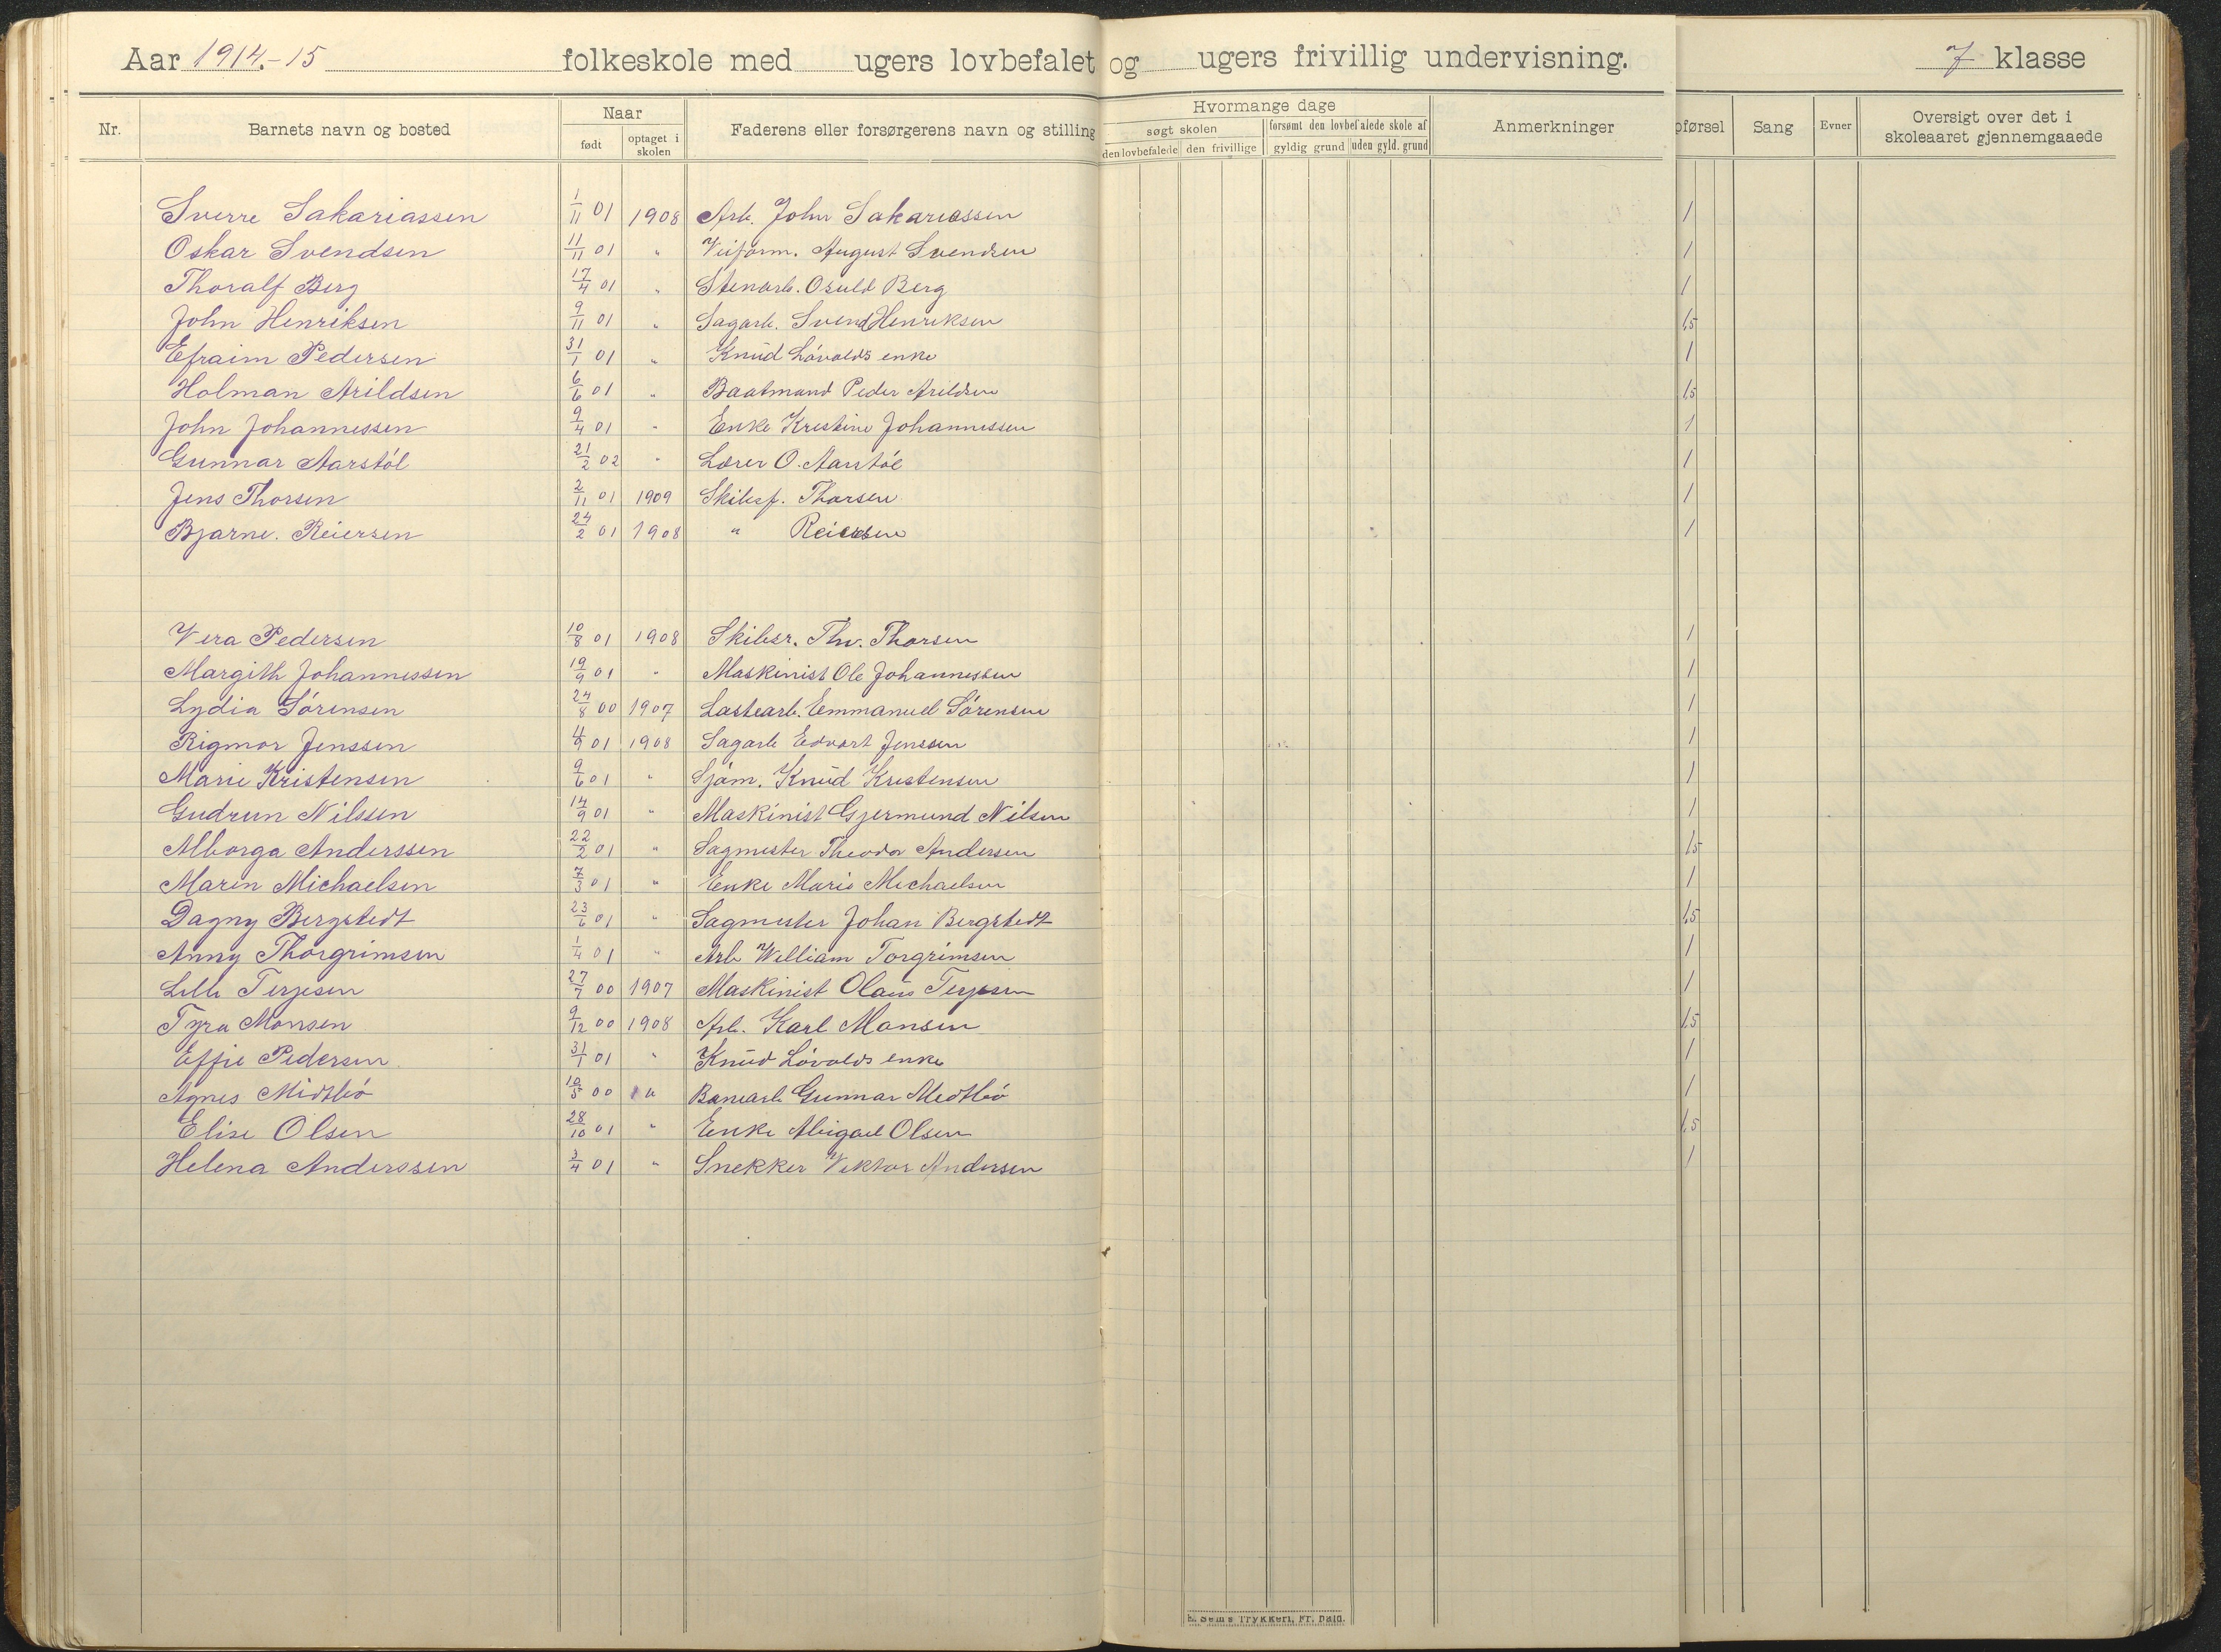 Aar 1914.-15 folkeskole med ugers lovbefalet og ugers frivillig undervisning. 7 klasse
Nr. Barnets navn og bosted Naar født optaget i skolen Faderens eller forsørgerens navn og stilling Hvormange dage søgt skolen den lovbefalede den frivillige forsømt den lovbefalede skole af gyldig grund uden gyld. grund Anmerkninger pførsel Sang Evner Oversigt over det i skoleaaret gjennemgaaede
Sverre Sakariassen 1/11 01 1908 Arb. John Sakariassen 1
Oskar Svendsen 11/11 01 " Veiform. August Svendsen 1
Thoralf Berg 17/4 01 " Stenarb. Osuld Berg 1
John Henriksen 9/11 01 " Sagarb. Svend Henriksen 1,5
Efraim Pedersen 31/1 01 " Knud Lövolds enke 1
Holman Arildsen 6/6 01 " Baatmand Peder Arildsen 1,5
John Johannessen 9/4 01 " Enke Kristine Johannessen 1
Gunnar Aarstöl 21/2 02 " Lærer O. Aarstöl 1
Jens Thorsen 2/11 01 1909 Skibsf. Thorsen 1
Bjarne. Reiersen 24/2 01 1908 " Reiersen 1
Vera Pedersen 10/8 01 1908 Skibsr. Thv. Thorsen 1
Margith Johannessen 19/9 01 " Maskinist Ole Johannessen 1
Lydia Sörensen 24/8 00 1907 Lastearb. Emmanuel Sörensen 1
Rigmor Jenssen 4/9 01 1908 Sagarb Edvart Jenssen 1
Marie Kristensen 9/6 01 " Sjöm. Knud Kristensen 1
Gudrun Nilssen 14/9 01 " Maskinist Gjermund Nilsen 1
Alborga Anderssen 22/2 01 " Sagmester Theodor Andersen 1,5
Maren Michaelsen 7/3 01 " Enke Marie Michaelsen 1
Dagny Bergstedt 23/6 01 " Sagmester Johan Bergstedt 1,5
Anny Thorgrimsen 1/4 01 " Arb William Torgrimsen 1
Lilli Terjesen 27/7 00 1907 Maskinist Olaus Terjesen 1
Tyra Monsen 9/12 00 1908 Arb. Karl Monsen 1,5
Effie Pedersen 31/1 01 " Knud Lövolds enke 1
Agnes Midtbö 10/5 00 " Banearb Gunnar Midtbö 1
Elise Olsen 28/10 01 " Enke Abigael Olsen 1,5
Helena Anderssen 3/4 01 " Snekker Viktor Andersen 1
E. Sems Trykkeri, Fr. hald.